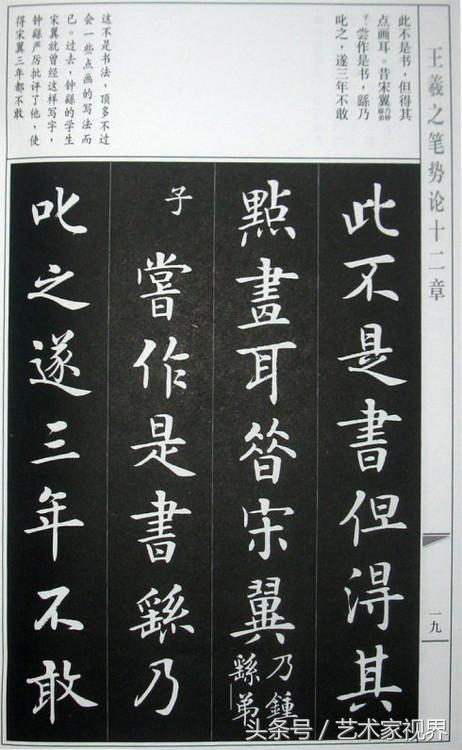 王羲之笔势论十二章
一九
此不是书，但得其
点画耳。昔宋翼乃钟繇弟
子，尝作是书，繇乃
叱之，遂三年不敢
这不是书法，顶多不过
会一些点画的写法而
已。过去，钟繇的学生
宋翼就曾经这样写字，
钟繇严厉批评了他，使
得宋翼三年都不敢
此不是書但得其
點畫耳昔宋翼乃鍾繇弟
子嘗作是書繇乃
叱之遂三年不敢
头条号／艺术家视界